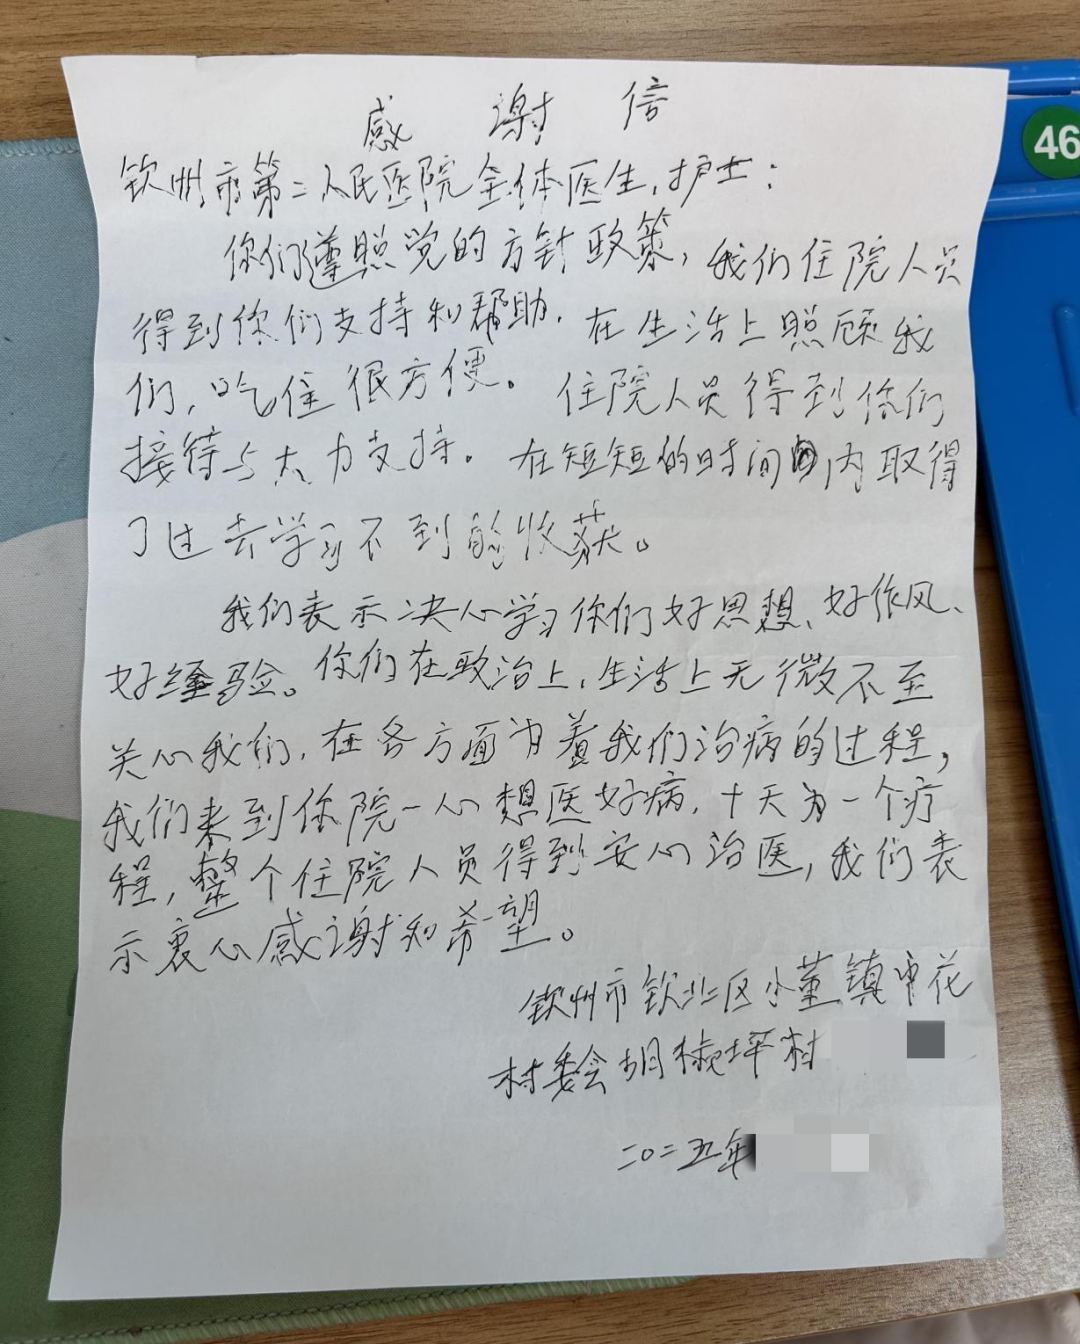 感谢信
46
钦州市第二人民医院全体医生,护士:
你们遵照党的方针政策,我们住院人员
得到你们支持和帮助.在生活上照顾我
们,吃住很方便。住院人员得到你们
接待与大力支持。在短短的时间内取得
了过去学习不到的收获。
我们表示决心学习你们好思想、好作风、
好经验。你们在政治上,生活上无微不至
关心我们,在各方面有着我们治病的过程,
我们来到你院一心想医好病,十天为一个疗
程,整个住院人员得到安心治医,我们表
示衷心感谢和希望。
钦州市钦北区小董镇中花
村委会胡椒坪村
二〇二五年